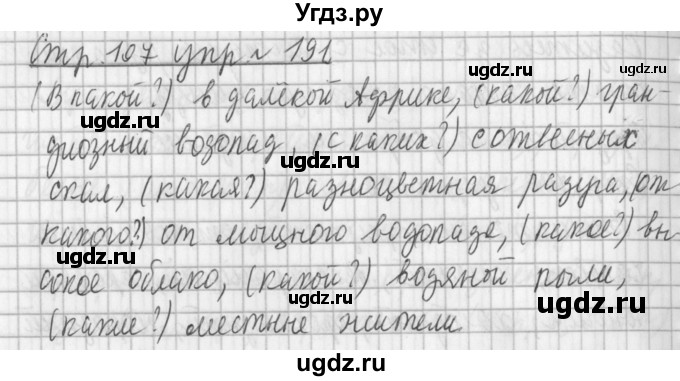 Угдз.ру
Стр. 107 упр № 191
ugdz.ru
(В какой?) в далёкой Африке, (какой?) гран-
ugdz.ru ugdz.ru
диозный водопад, (с каких?) с отвесных
ugdz.ru
скал, (какая?) разноцветная радуга, (от
ugdz.ru ugdz.ru
какого?) от мощного водопада, (какое?) вы
ugdz.ru
сокое облако, (какой?) водяной пыли,
ugdz.ru ugdz.ru
(какие?) местные жители
ugdz.ru